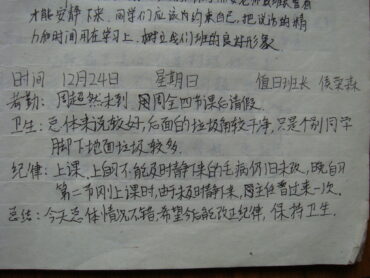 才能安静下来。同学们应该为约束自己,把说话的精
力和时间用在学习上,树立我们班的良好形象。
时间 12月24日 星期日 值日班长 侯
考勤:周超然未到 周四节课后请假。
卫生:总体来说较好,后面的垃圾角较干净,只是个别同学
脚下地面垃圾较多。
纪律:上课、上自习不能及时静下来的毛病仍旧未改,晚自习
第二节刚上课时,由于未及时静下来,周主任曾过来一次。
总结:今天总体情况不错,希望今后能改正纪律,保持卫生。